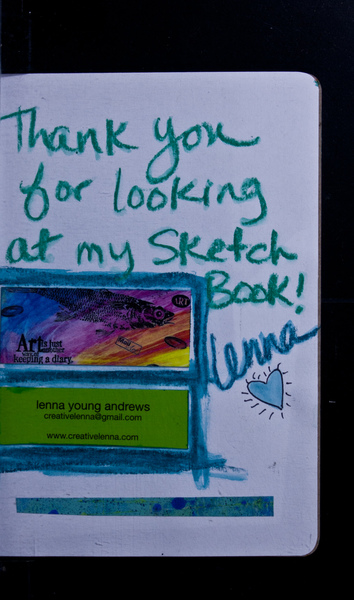 Thank you
for looking
at my Sketch
Book!
lenna
ART
Art is just
another
way of
keeping a diary.
lenna young andrews
creativelenna@gmail.com
www.creativelenna.com